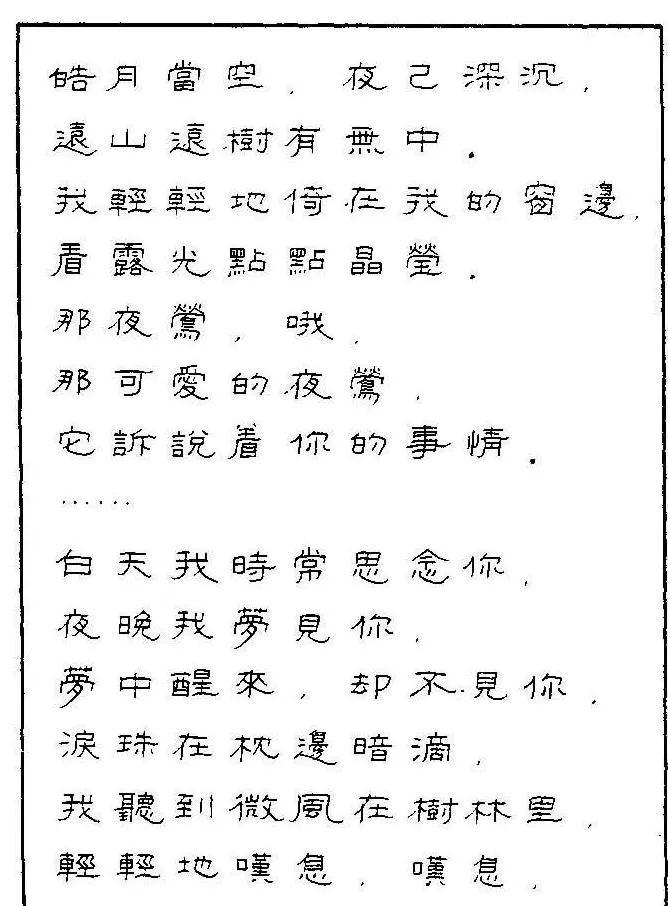 皓月當空，夜已深沉，
遠山遠樹有無中．
我輕輕地倚在我的窗邊，
看露光點點晶瑩．
那夜鶯，哦，
那可愛的夜鶯，
它訴說着你的事情．
······
白天我時常思念你，
夜晚我夢見你，
夢中醒來，却不見你，
淚珠在枕邊暗滴，
我聽到微風在樹林里，
輕輕地嘆息，嘆息，